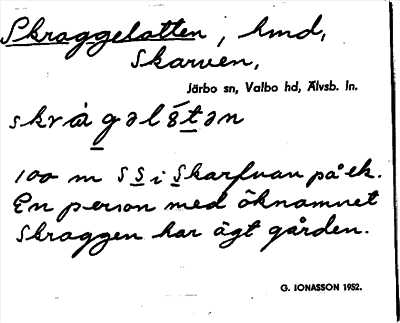 Skraggelotten, hmd,
Skarven,
Järbo sn, Valbo hd, Älvsb. ln.
skràgəlótən
100 m S S i Skarfvan på ek.
En person med öknamnet
Skraggen har ägt gården.
G. JONASSON 1952.